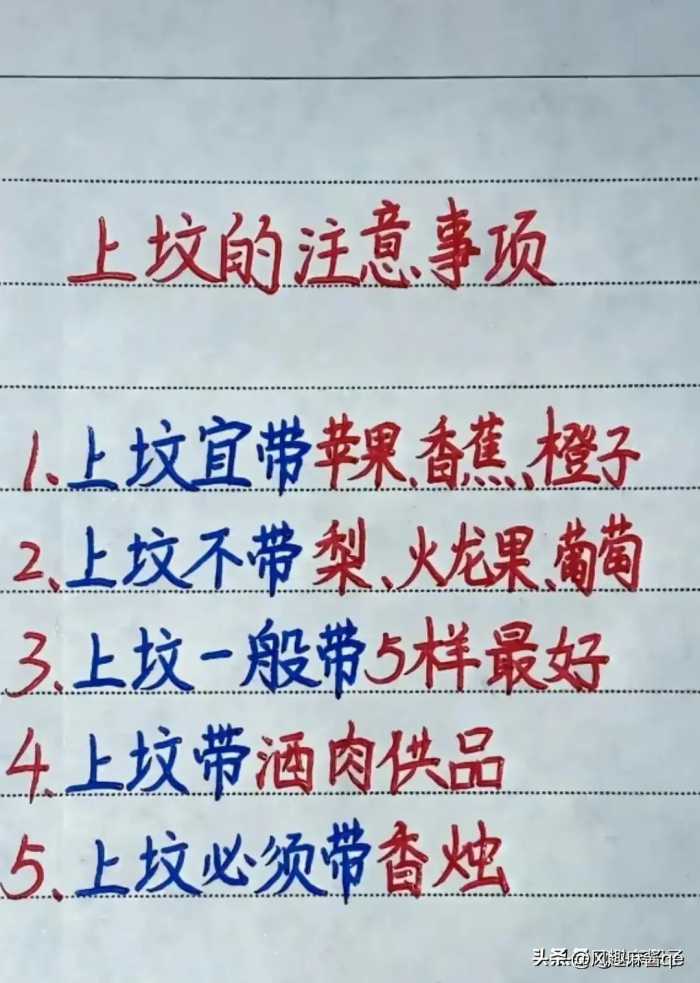 上坟的注意事项
1、上坟宜带苹果、香蕉、橙子
2、上坟不带梨、火龙果、葡萄
3、上坟一般带5样最好
4、上坟带酒肉供品
5、上坟必须带香烛